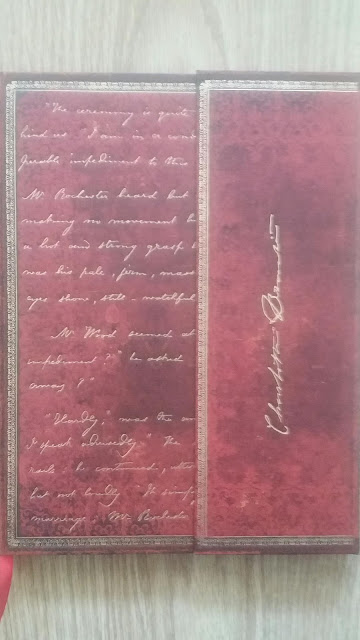 "The ceremony is quite
hind us. "I am in a cond
perable impediment to this
Mr. Rochester heard but
making no movement b
a hot and strong grasp
was his pale, firm, mass
eyes shone, still watchful
Mr. Wood seemed at
impediment?" he asked
away?"
"Hardly," was the an
I speak advisedly." The
rails. He continued,
but not loudly. "It simply
marriage: Mr. Rochester
Charlotte Brontë